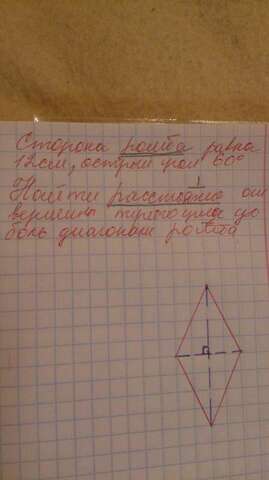 Сторона ромба равна
12см, острый угол 60°
Найти расстояние от
вершины тупого угла до
боль диагонали ромба